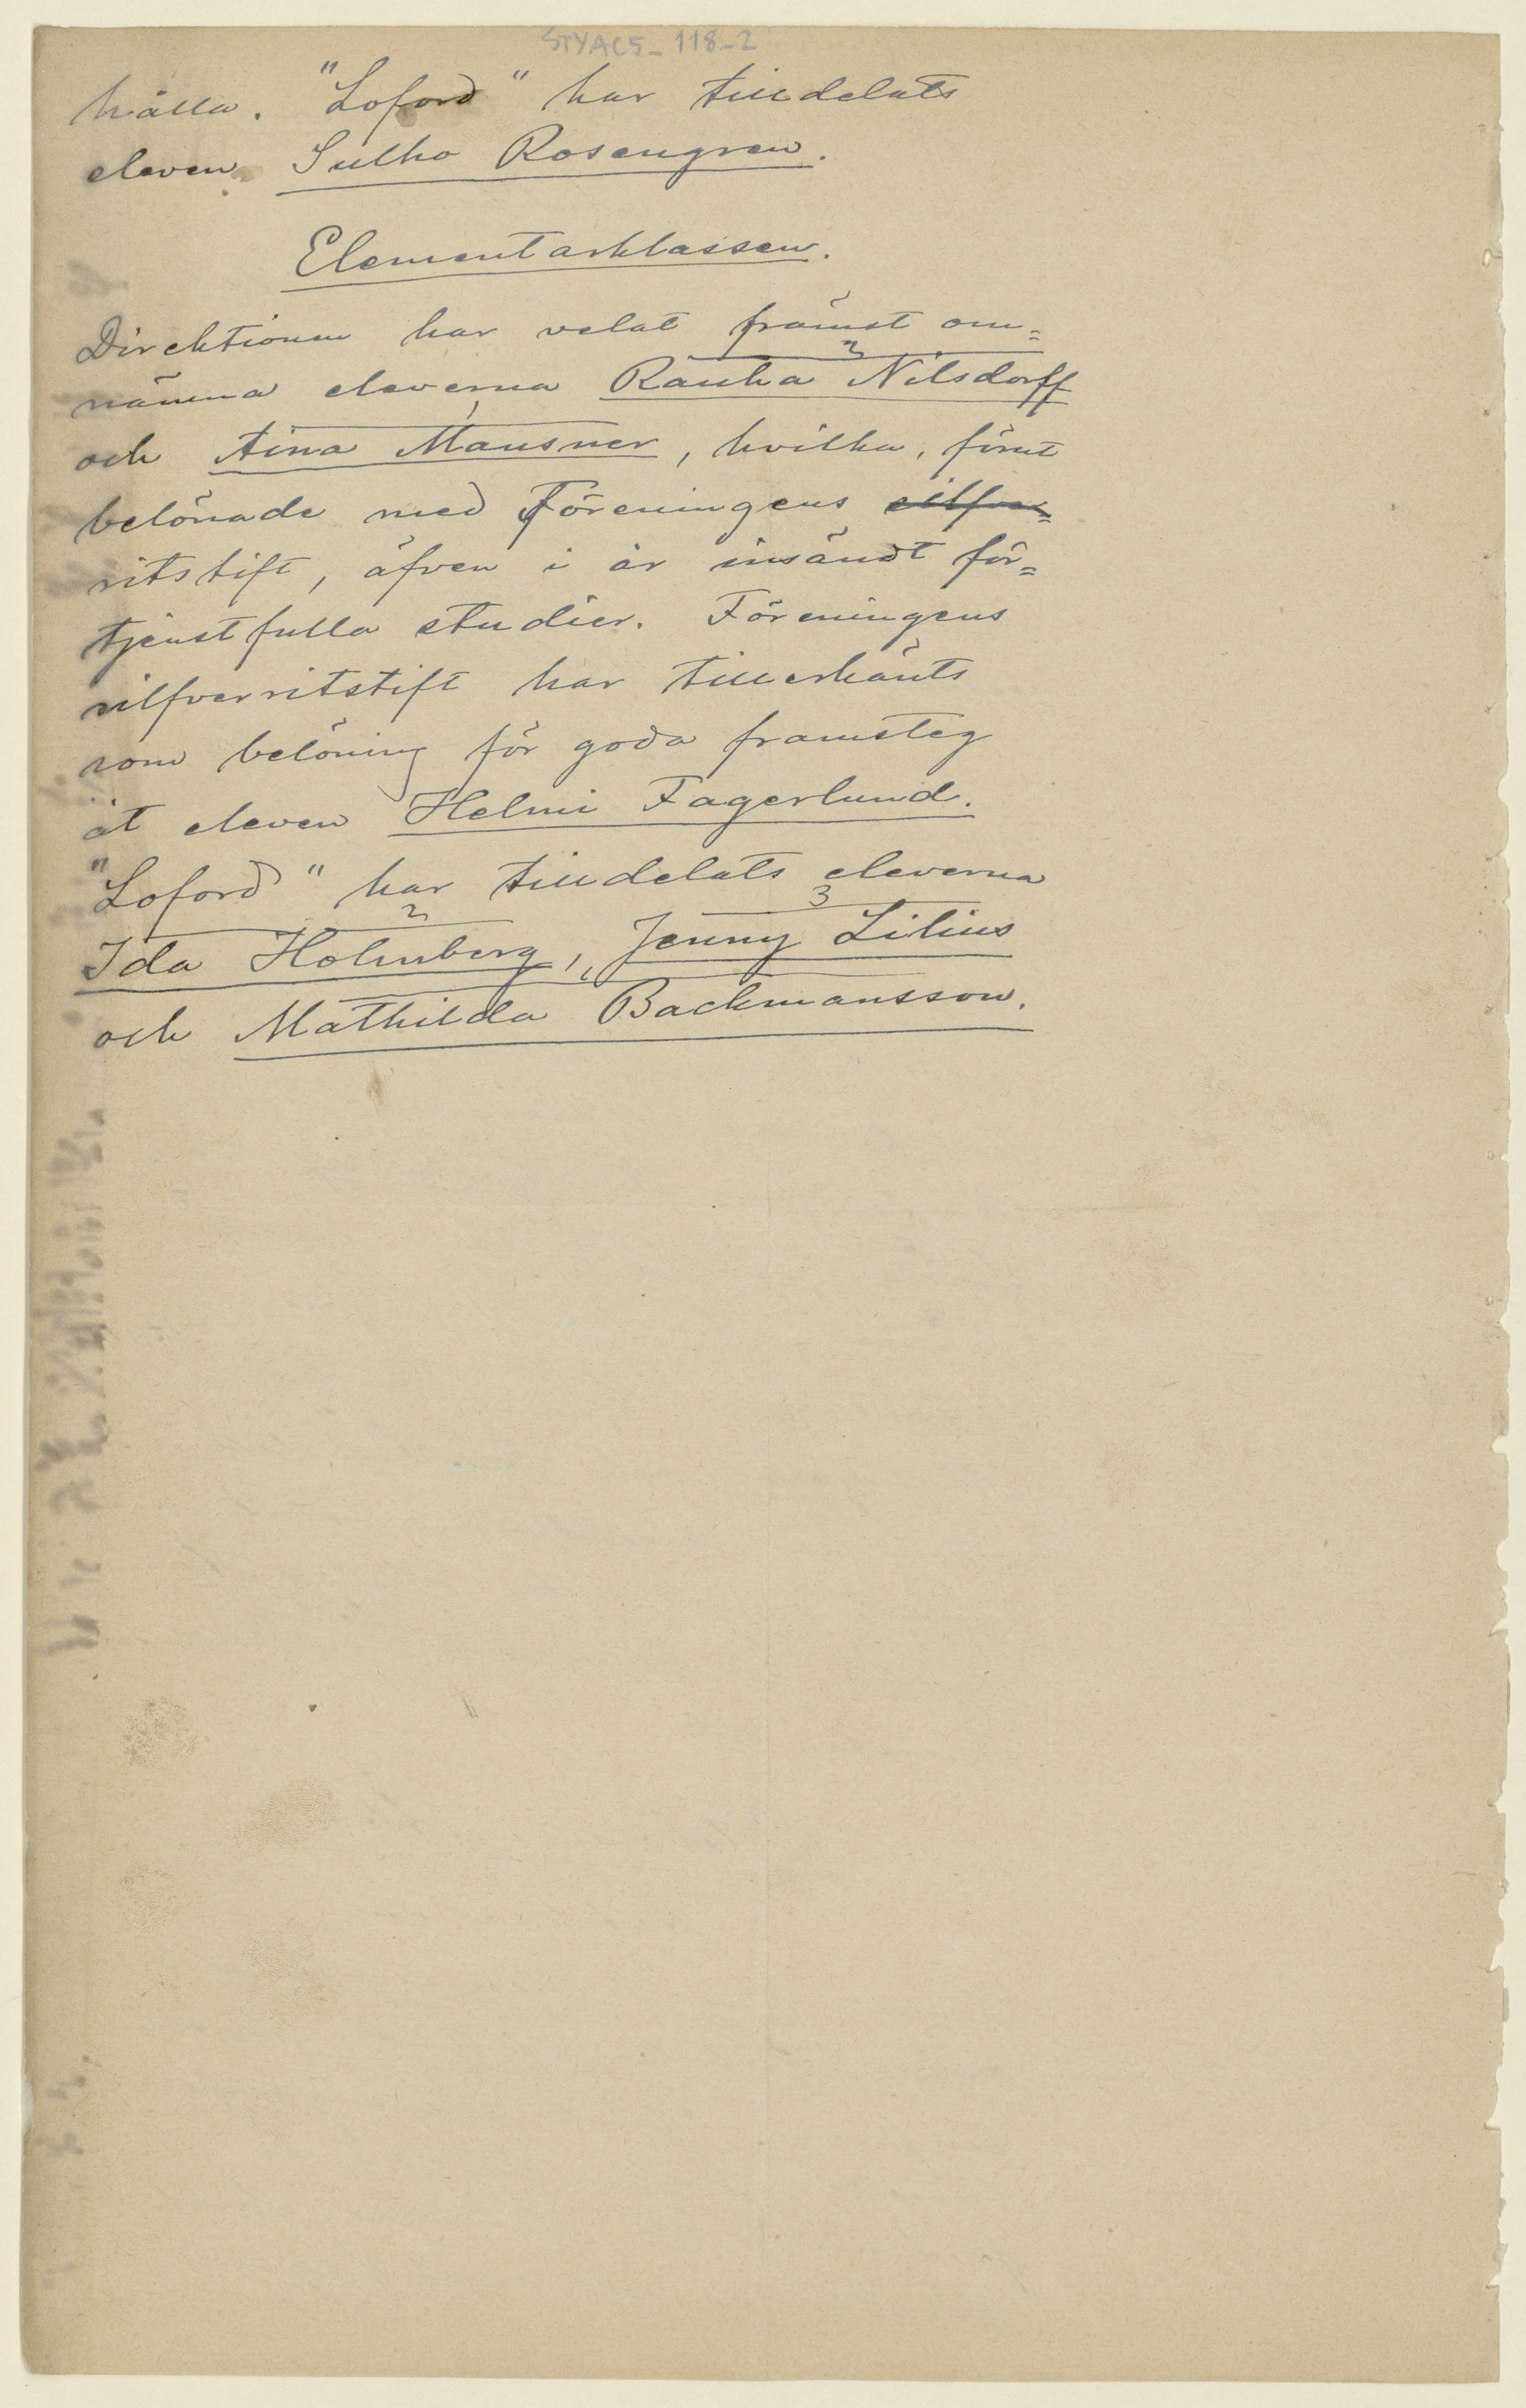 STYAC5_118_2
hålla. "Loford" har tilldelats
eleven Sulho Rosengren.
Elementarklassen.
Direktionen har velat främst om=
2
nämna eleverna Rauha Nilsdorff
1
och Aina Mansner, hvilka, förut
belönade med Föreningens silfver=
ritstift, äfven i år insändt för=
tjenstfulla studier. Föreningens
silfverritstift har tillerkänts
som belöning för goda framsteg
åt eleven Helmi Fagerlund.
"Loford" har tilldelats eleverna
2 3
Ida Holmberg, Jenny Lilius
1
och Mathilda Backmansson.